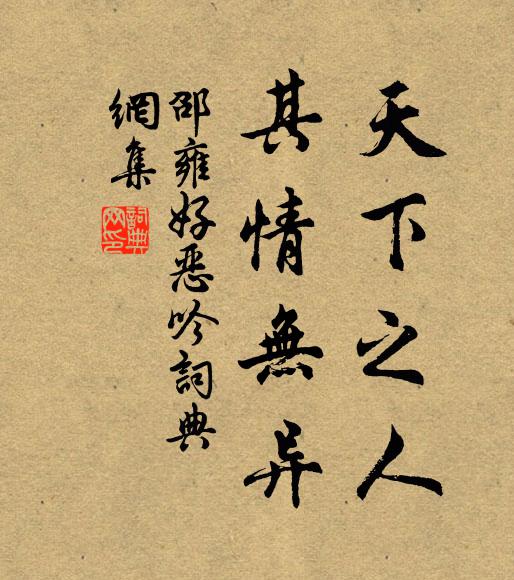 天下之人
其情無异
邵雍好恶吟詞典
網集
詞典
网印